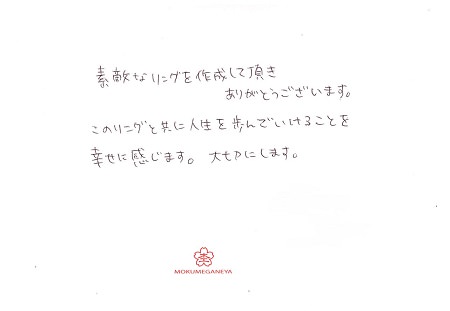 素敵なリングを作成して頂き
ありがとうございます。
このリングと共に人生を歩んでいけることを
幸せに感じます。大切にします。
MOKUMEGANEYA